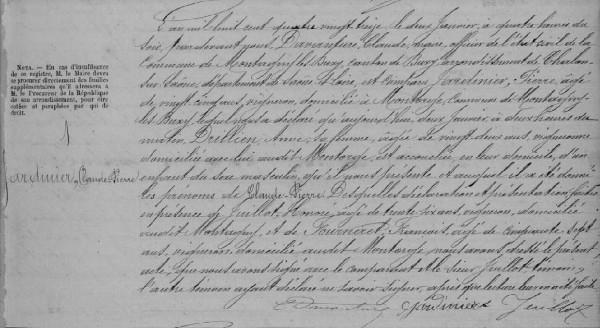 NOTA. — En cas d'insuffisance
de ce registre, M. le Maire devra
se procurer directement des feuilles
supplémentaires qu'il adressera à
M. le Procureur de la République
de son arrondissement, pour être
cotées et paraphées par qui de
droit.
1
Jardinier, Claude-Pierre
L'an mil huit cent quatre vingt treize le deux Janvier, à quatre heures du
soir, par devant nous, Davanture, Claude, maire, officier de l'état civil de la
Commune de Montagny les Buxy, canton de Buxy, arrondissement de Chalon-
sur-Saône, département de Saône et Loire, est comparu Jardinier, Pierre, âgé
de vingt cinq ans, vigneron, domicilié à Montorge, commune de Montagny-
les Buxy, lequel nous a déclaré qu'aujourd'hui, deux janvier, à deux heures du
matin, Drillien, Anne, sa femme, âgée de vingt deux ans, vigneronne
domiciliée avec lui audit Montorge, est accouchée, en leur domicile, d'un
enfant du sexe masculin, qu'il nous présente et auquel il a été donné
les prénoms de Claude-Pierre. Desquelles déclaration et présentation faites
en présence de Juillot, Honoré, âgé de trente six ans, vigneron, domicilié
audit Montagny, et de Fourneret, François, âgé de cinquante sept
ans, vigneron, domicilié audit Montorge, nous avons dressé le présent
acte, que nous avons signé avec le comparant et le sieur Juillot, témoin,
l'autre témoin ayant déclaré ne savoir signer, après que lecture leur en a été faite.
Jardinier Juillot